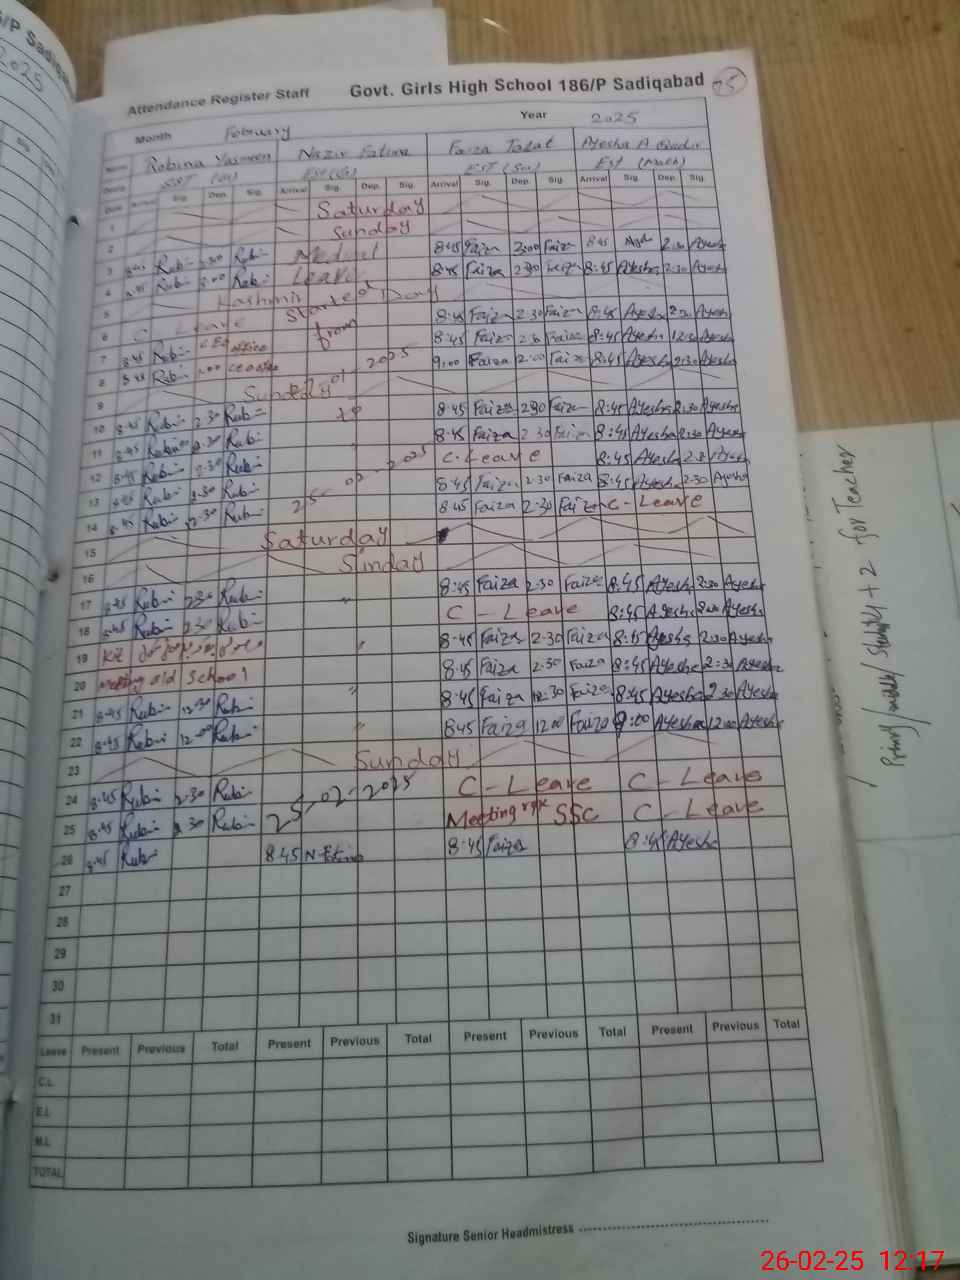 Sadiqa
2025
Attendance Register Staff Govt. Girls High School 186/P Sadiqabad 75
Month February Year 2025
Name Robina Yasmeen Nazir Fatima Faiza Talat Ayesha A Qadir
EST (Sci) EST (Math)
Date Arrival Sig. Dep. Sig. Arrival Sig. Dep. Sig. Arrival Sig. Dep. Sig. Arrival Sig. Dep. Sig.
1 Saturday
2 Sunday
3 8:45 Rubi 2:30 Rubi Medical 8:45 Faiza 2:00 Faiza 8:45 2:30 Ayesha
4 8:45 Rubi 2:00 Rubi Leave 8:45 Faiza 2:30 Faiza 8:45 Ayesha 2:30 Ayesha
5 Kashmir Day
6 C Leave Started 8:45 Faiza 2:30 Faiza 8:45 Ayesha 2:30 Ayesha
7 8:45 Rubi CEO office from 8:45 Faiza 2:30 Faiza 8:45 Ayesha 12:30 Ayesha
8 8:45 Rubi 01-2025 9:00 Faiza 2:00 Faiza 8:45 Ayesha 2:30 Ayesha
9 Sunday
10 8:45 Rubi 2:30 Rubi to 8:45 Faiza 2:30 Faiza 8:45 Ayesha 2:30 Ayesha
11 8:45 Rubi 2:30 Rubi 8:45 Faiza 2:30 Faiza 8:45 Ayesha 2:30 Ayesha
12 8:45 Rubi 2:30 Rubi C-Leave 8:45 Ayesha 2:30 Ayesha
13 8:45 Rubi 2:30 Rubi 25-02-2025 8:45 Faiza 2:30 Faiza 8:45 Ayesha 2:30 Ayesha
14 8:45 Rubi 2:30 Rubi 8:45 Faiza 2:30 Faiza C-Leave
15 Saturday
16 Sunday
17 8:45 Rubi 2:30 Rubi " 8:45 Faiza 2:30 Faiza 8:45 Ayesha 2:30 Ayesha
18 8:45 Rubi 2:30 Rubi C-Leave 8:45 Ayesha Ayesha
19 " 8:45 Faiza 2:30 Faiza 8:45 Ayesha 2:30 Ayesha
20 Meeting old School 8:45 Faiza 2:30 Faiza 8:45 Ayesha 2:30 Ayesha
21 8:45 Rubi 12:30 Rubi " 8:45 Faiza 12:30 Faiza 8:45 Ayesha 2:30 Ayesha
22 8:45 Rubi 12:00 Rubi " 8:45 Faiza 12:00 Faiza 9:00 Ayesha 12:00 Ayesha
23 Sunday
24 8:45 Rubi 2:30 Rubi 25-02-2025 C-Leave C-Leave
25 8:45 Rubi 2:30 Rubi Meeting SSC C-Leave
26 8:45 Rubi 8:45 N.Fatima 8:45 Faiza 8:45 Ayesha
27
28
29
30
31
Leave Present Previous Total Present Previous Total Present Previous Total Present Previous Total
C.L
E.L
M.L
TOTAL
Signature Senior Headmistress
+ 2 for Teacher
26-02-25 12:17